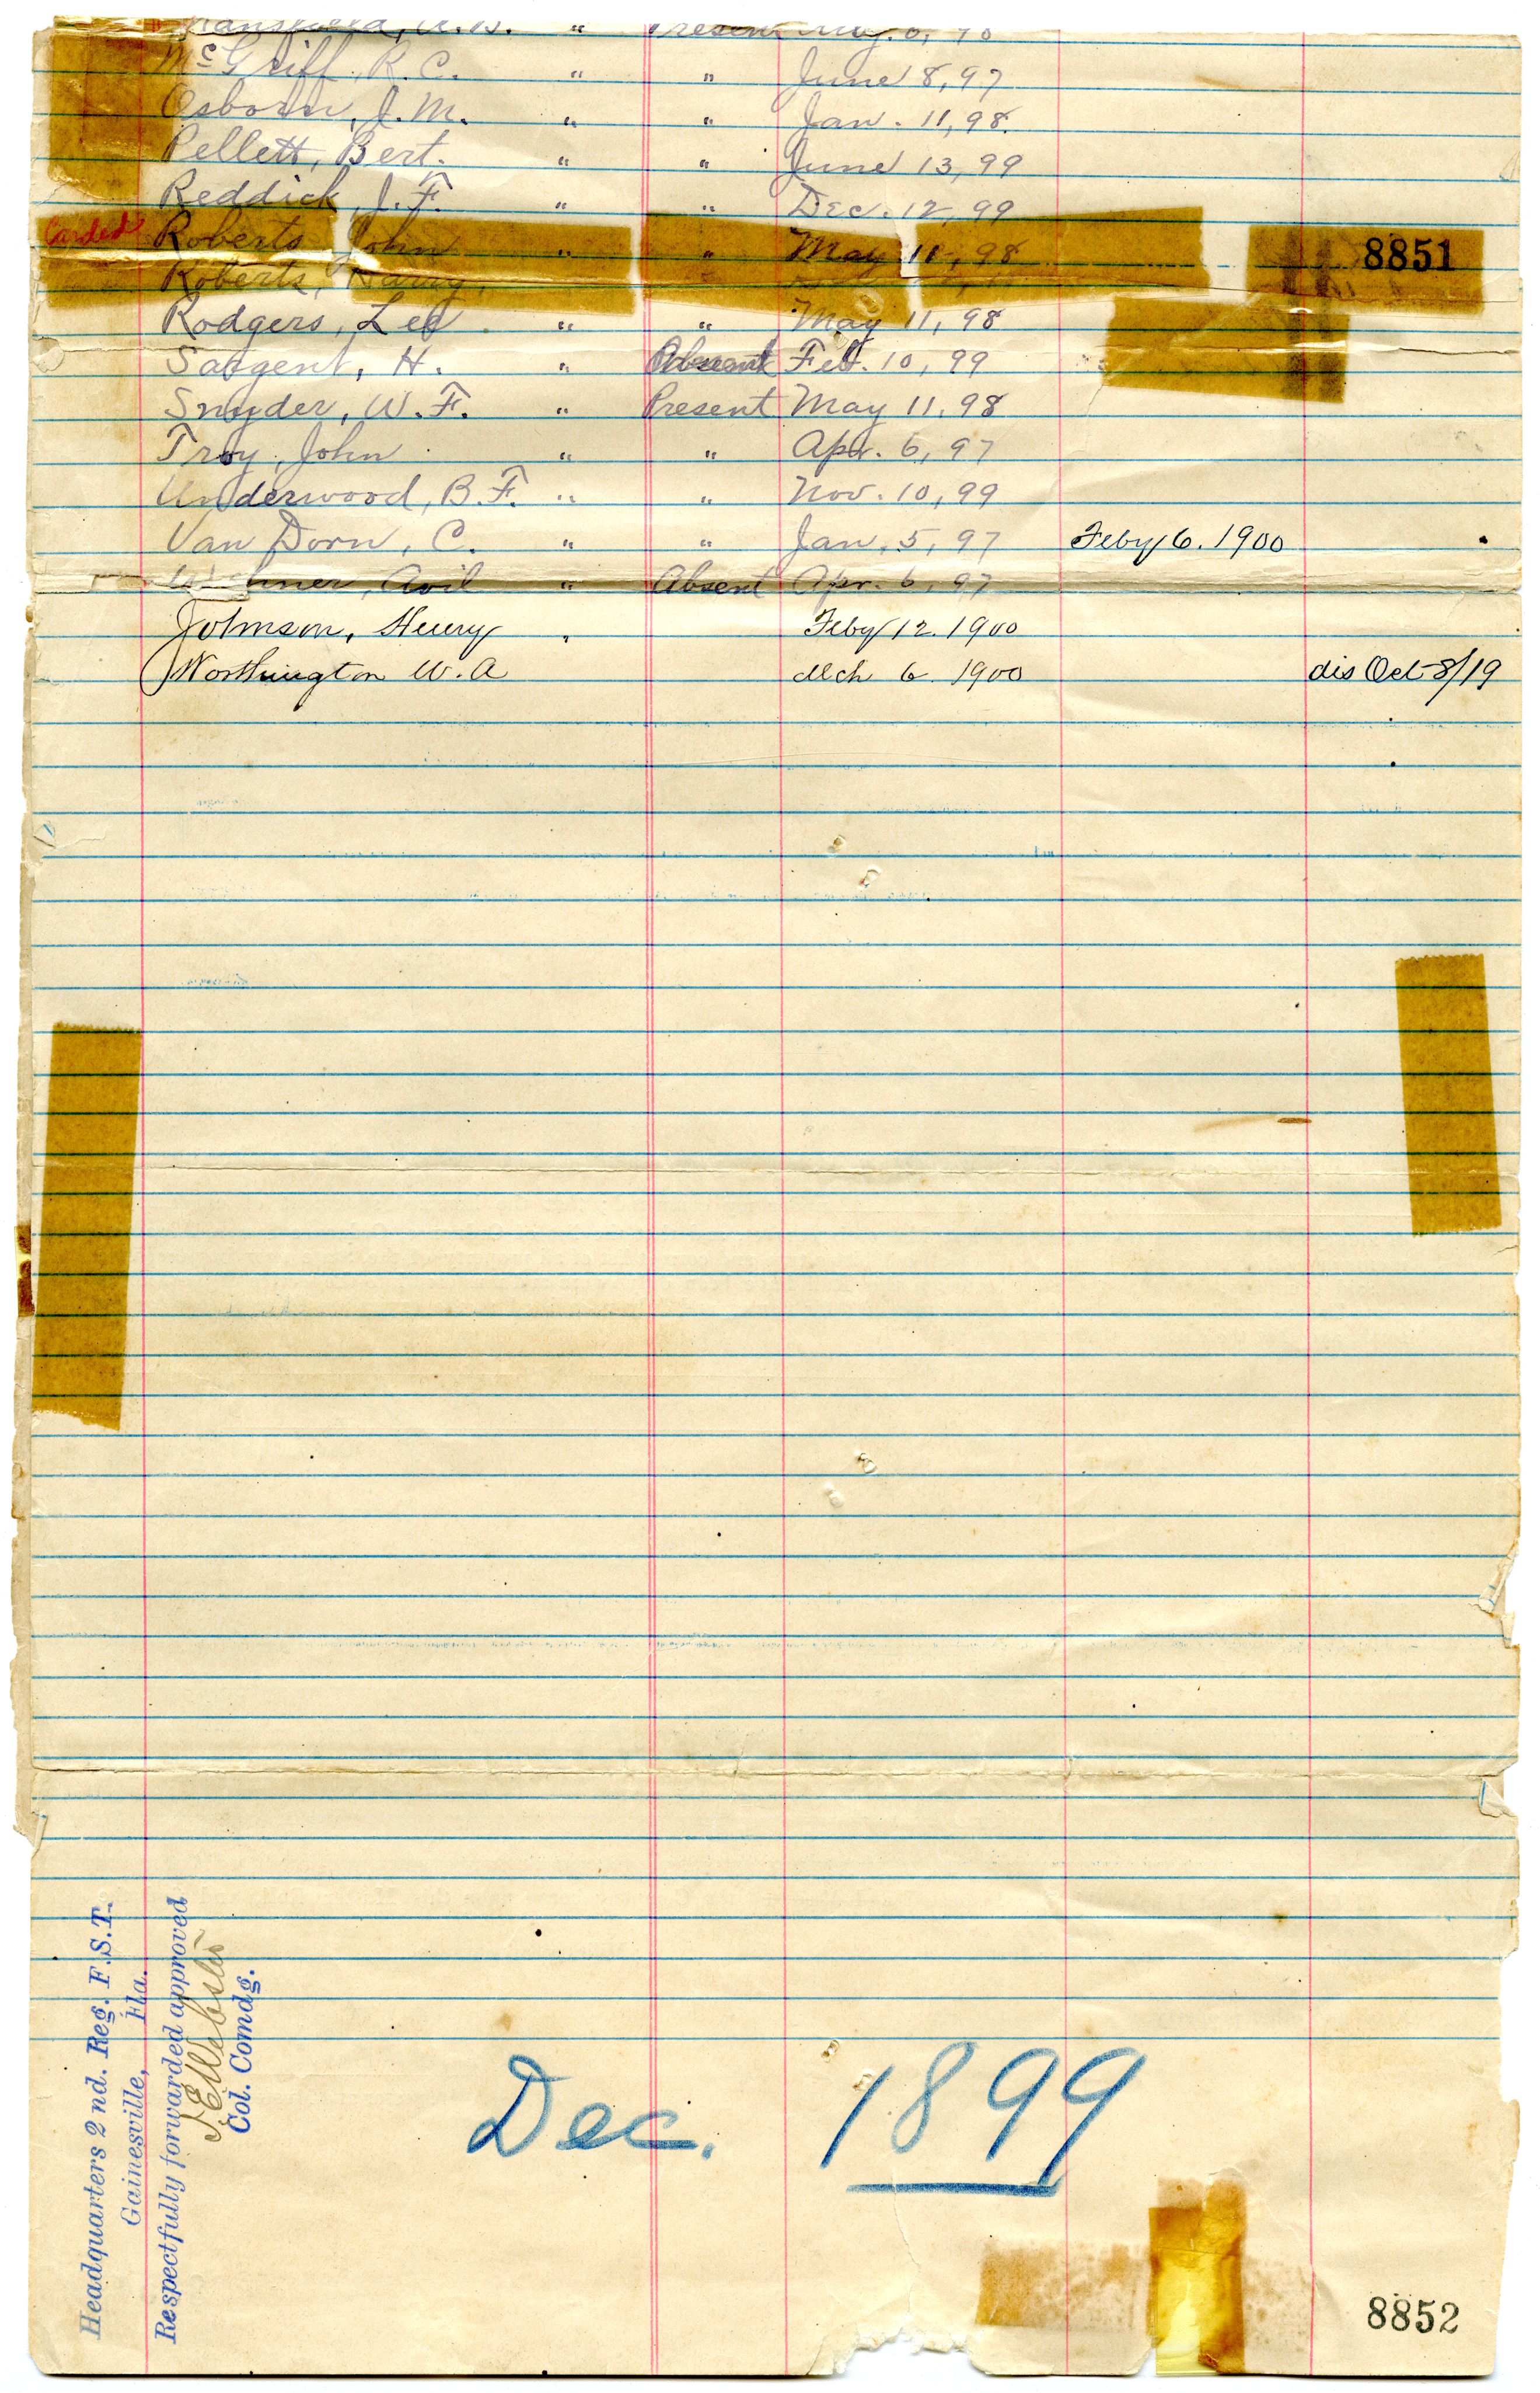 " Present 
McGriff, R. C. " " June 8, 97
Osborn, J. M. " " Jan. 11, 98.
Pellett, Bert. " " June 13, 99
Reddick, J. F. " " Dec. 12, 99
Carded Roberts John " " May 11, 98 8851
Roberts, Harry,
Rodgers, Lee " " May 11, 98
Sargent, H. " Absent Feb. 10, 99
Snyder, W. F. " Present May 11, 98
Troy, John " " Apr. 6, 97
Underwood, B. F. " " Nov. 10, 99
Van Dorn, C. " " Jan. 5, 97 Feby 6. 1900
" Absent Apr. 6, 97
Johnson, Henry " Feby 12. 1900
Worthington W. A Mch 6. 1900 dis Oct 8/19
Headquarters 2nd. Reg. F.S.T.
Gainesville, Fla.
Respectfully forwarded approved
J E Webster
Col. Comdg.
Dec. 1899
8852